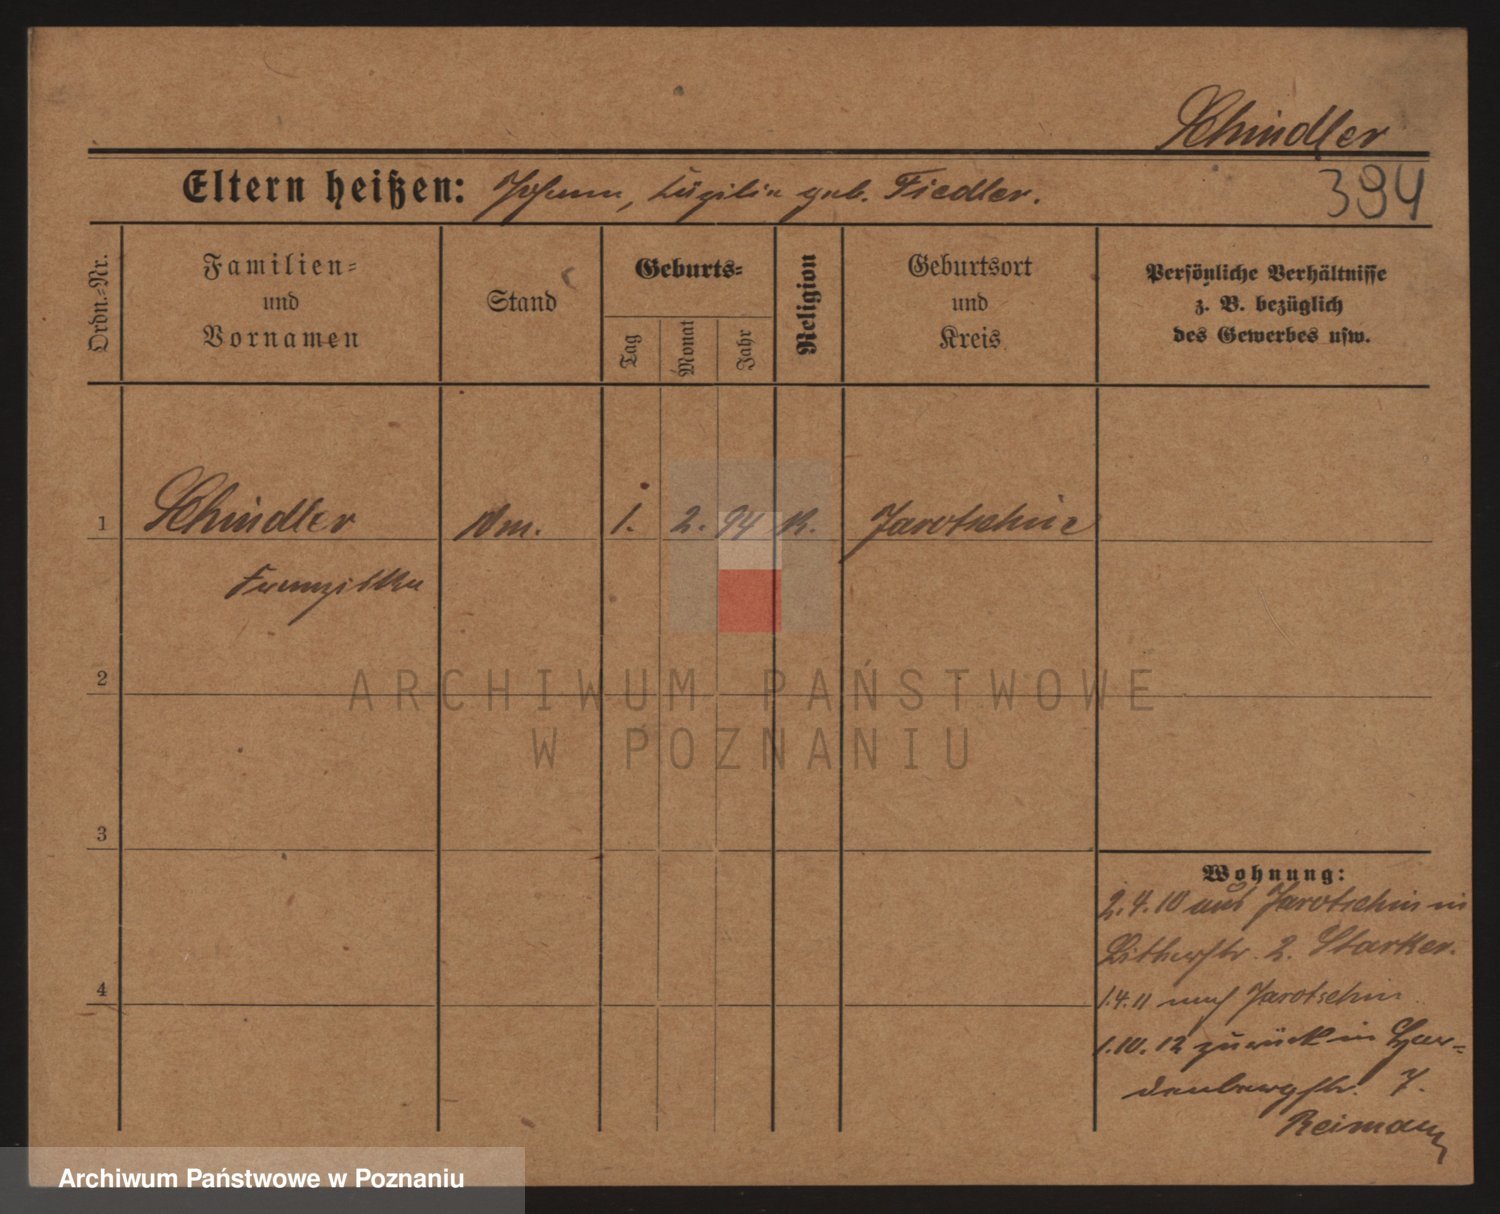 Schindler
Eltern heißen: Johann, geb. Fiedler.
394
Ordn.-Nr.
Familien-
und
Vornamen
Stand
Geburts-
Tag
Monat
Jahr
Religion
Geburtsort
und
Kreis
Persönliche Verhältnisse
z. B. bezüglich
des Gewerbes usw.
1 Schindler 1. 2. 94 K. Jarotschin
Franziska
2
3
4
Wohnung:
2.4.10 aus Jarotschin in
2. Starker.
1.4.11 nach Jarotschin
1.10.12 zurück in Har-
denbergstr. 7.
Reimann
ARCHIWUM PAŃSTWOWE
W POZNANIU
Archiwum Państwowe w Poznaniu